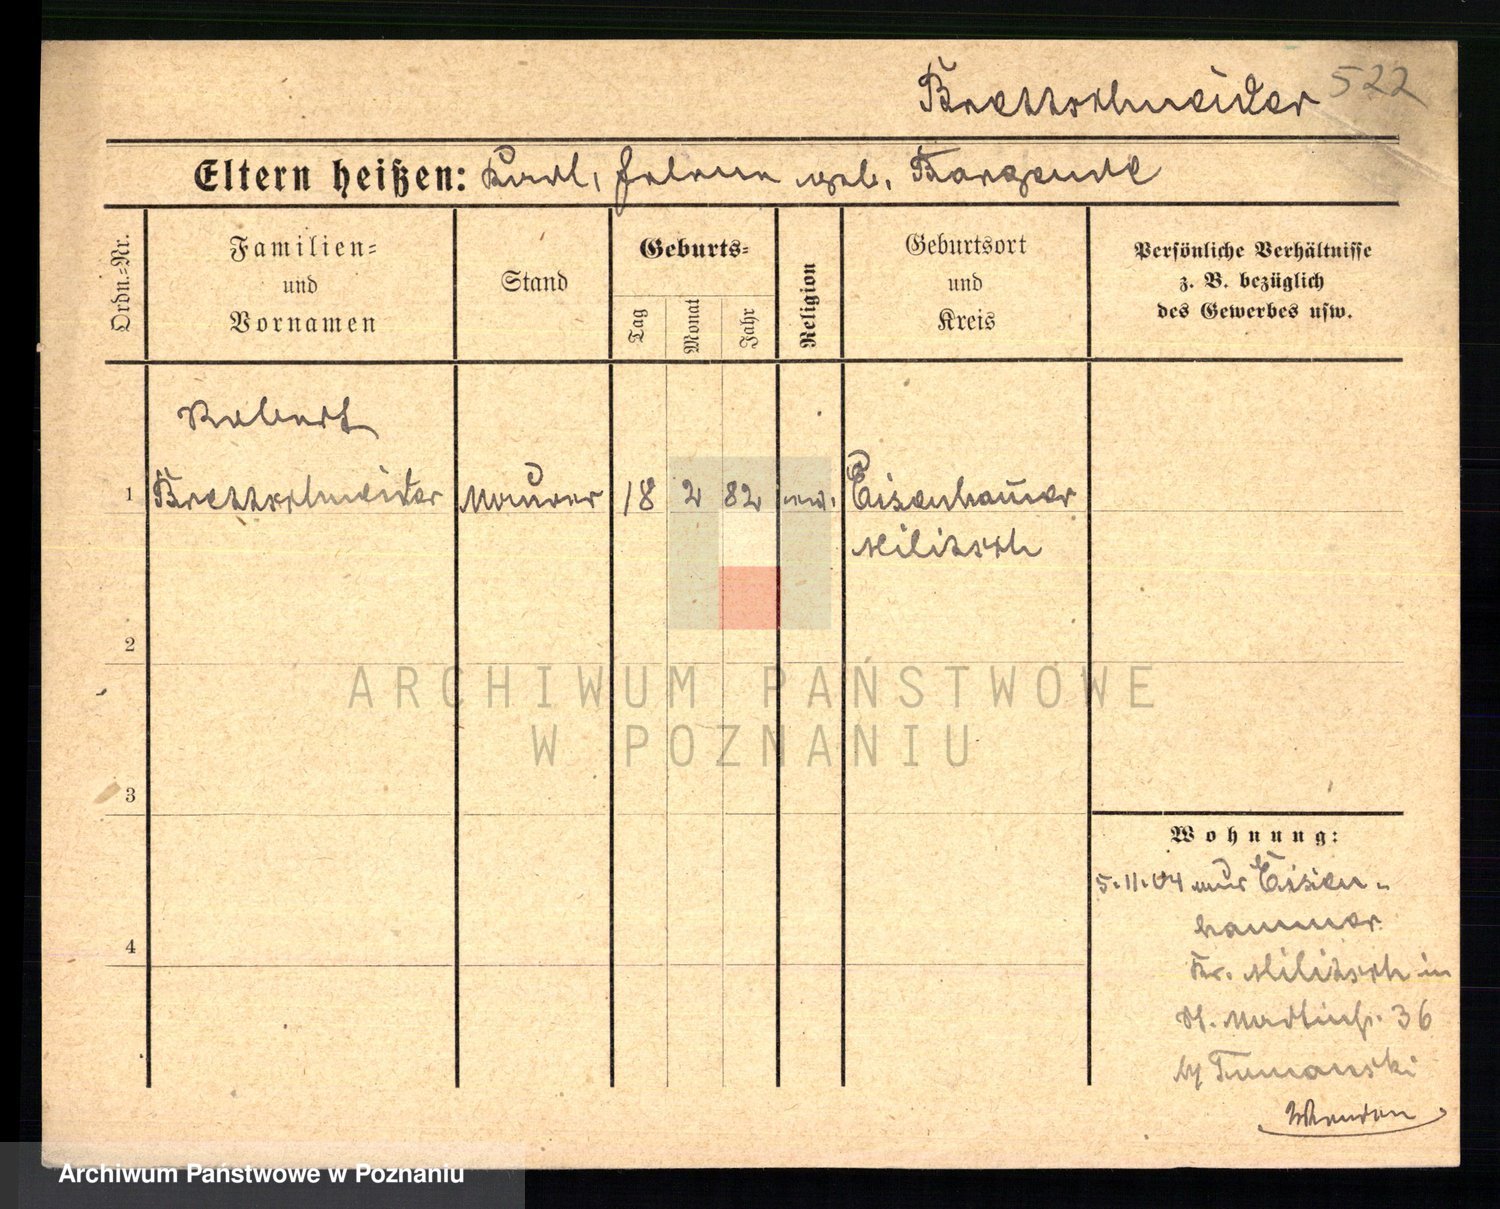 Brettschneider 522
Eltern heißen: Karl, Helene geb. Bargende
Ordn.=Nr.
Familien=
und
Vornamen
Stand
Geburts=
Tag
Monat
Jahr
Religion
Geburtsort
und
Kreis
Persönliche Verhältnisse
z. B. bezüglich
des Gewerbes usw.
Robert
1 Brettschneider Maurer 18 2 82 ev. Eisenhammer
Militsch
2
ARCHIWUM PAŃSTWOWE
W POZNANIU
3
Wohnung:
5.11.04 aus Eisen-
hammer
4
Kr. Militsch in
St. Martinstr. 36
by Tumanski
Archiwum Państwowe w Poznaniu